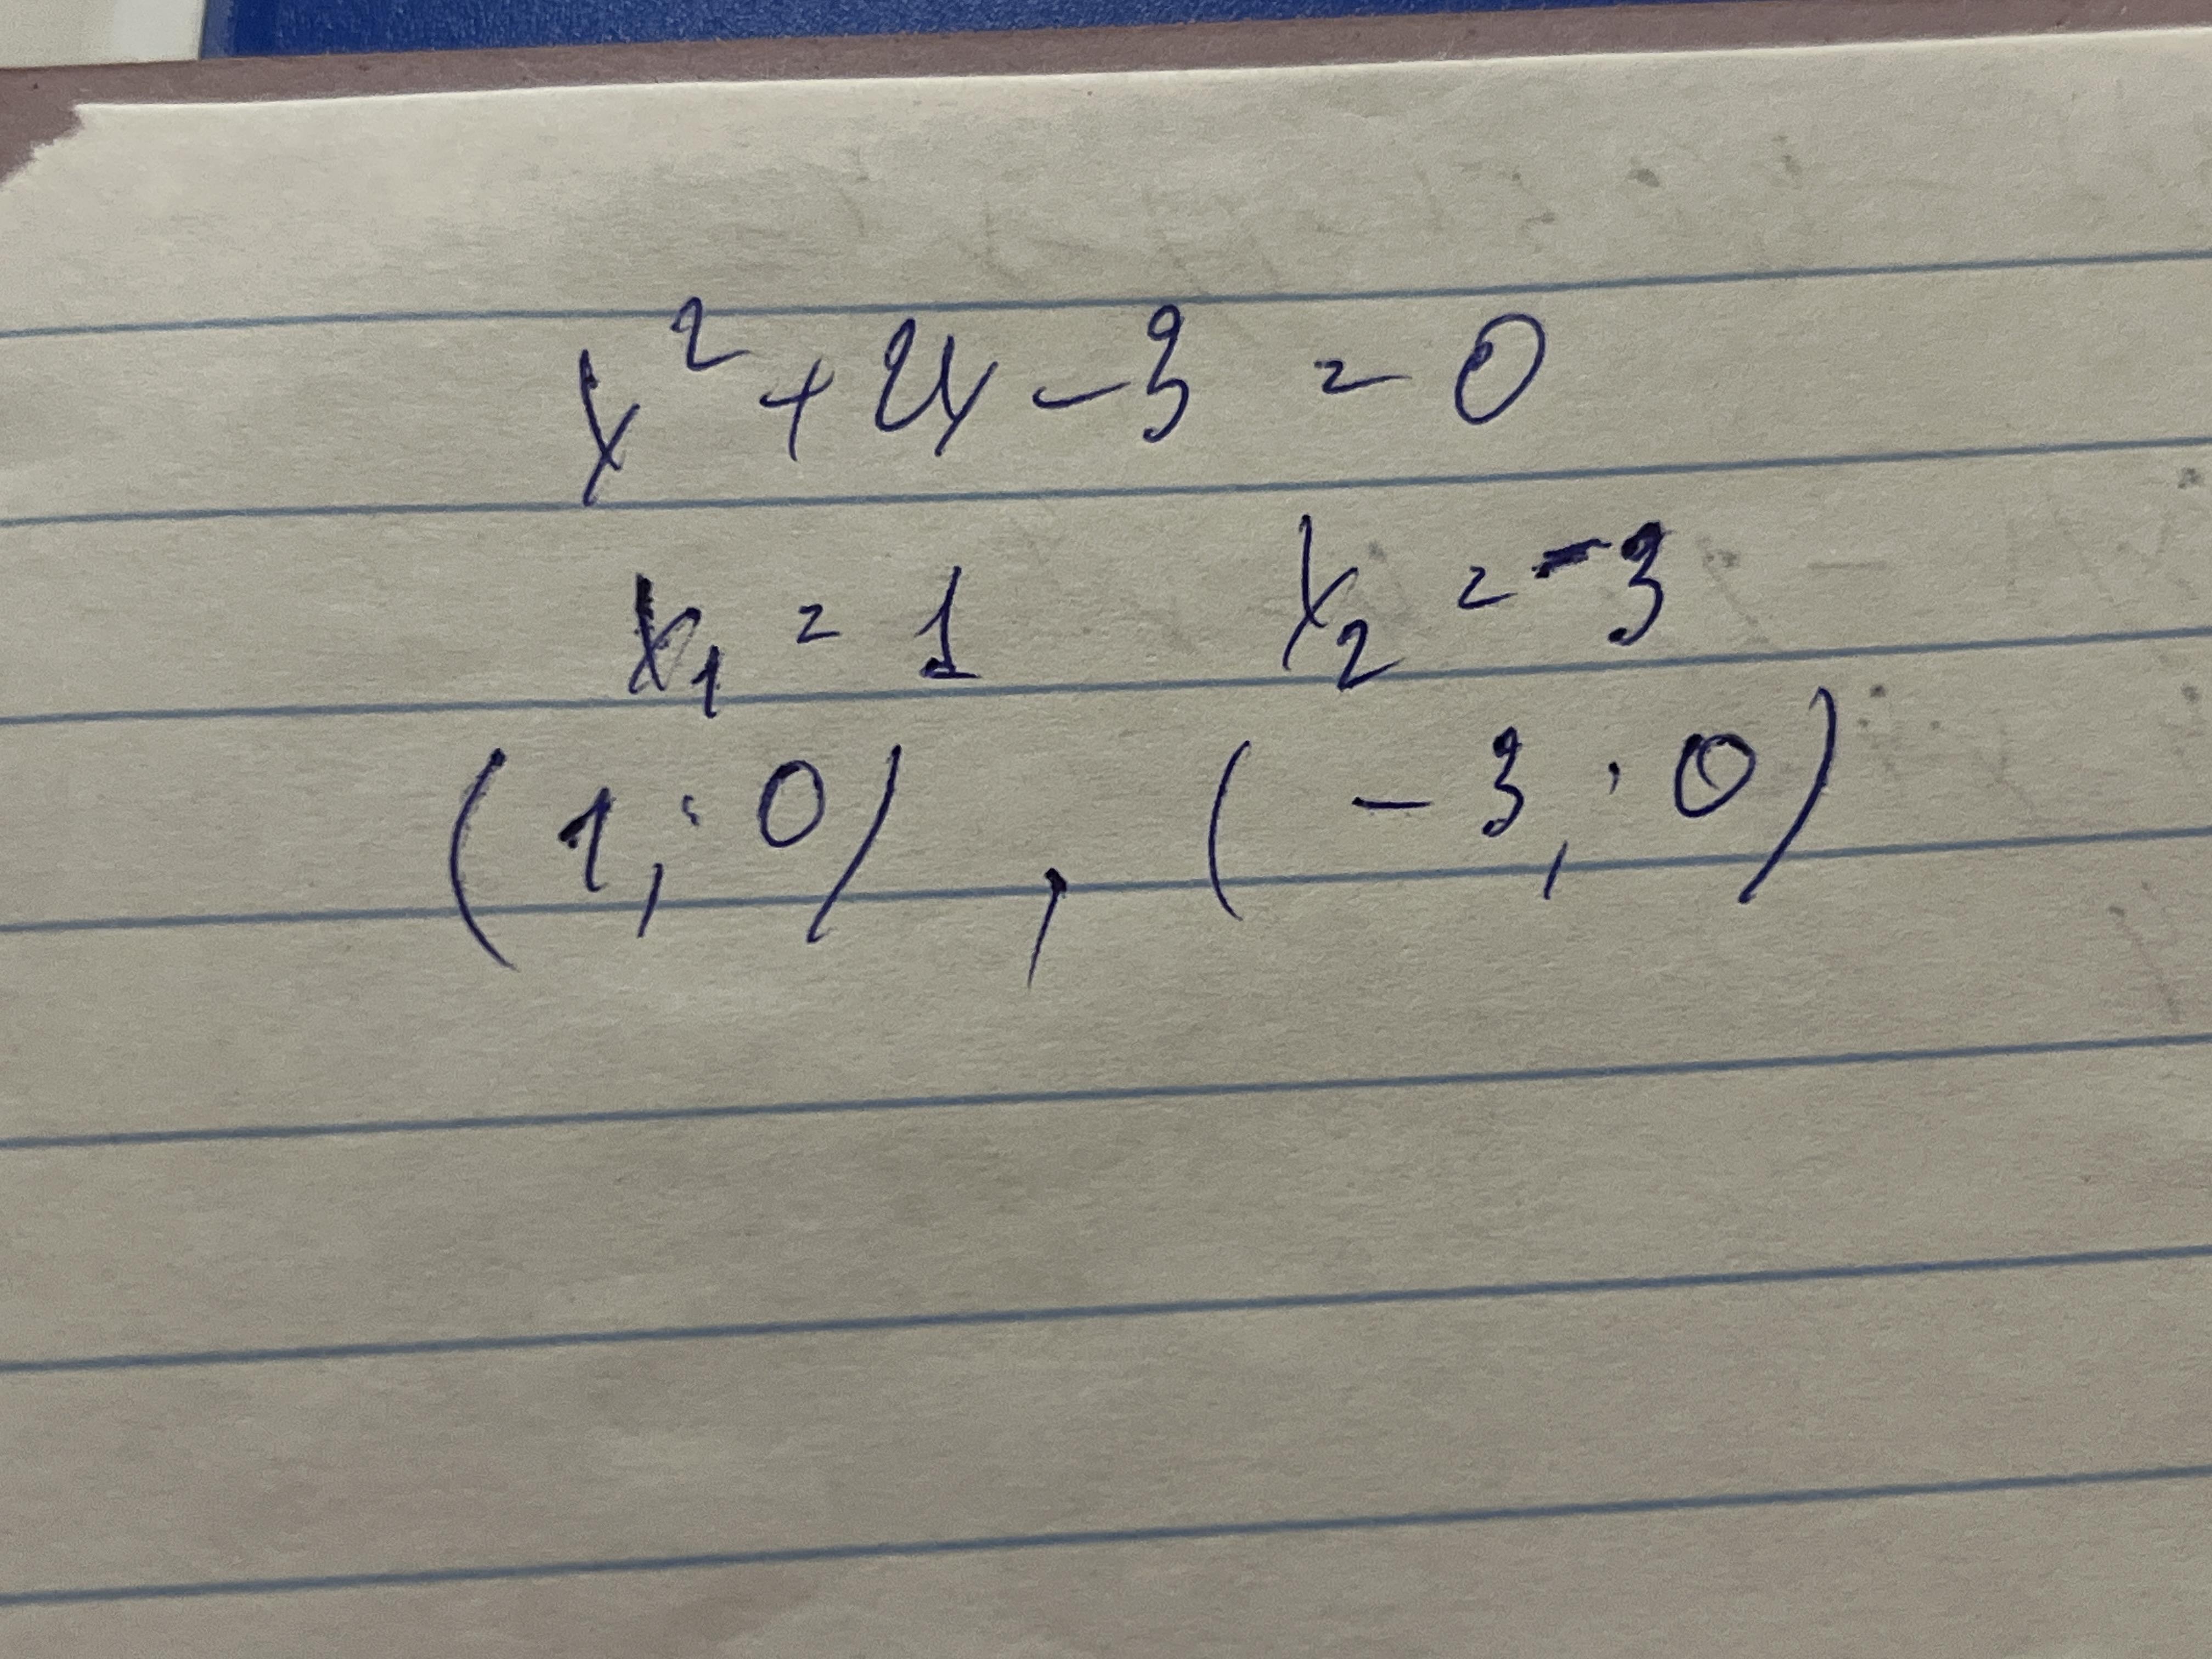 x² + 2x - 3 = 0
x₁ = 1 x₂ = -3
(1; 0) , (-3; 0)